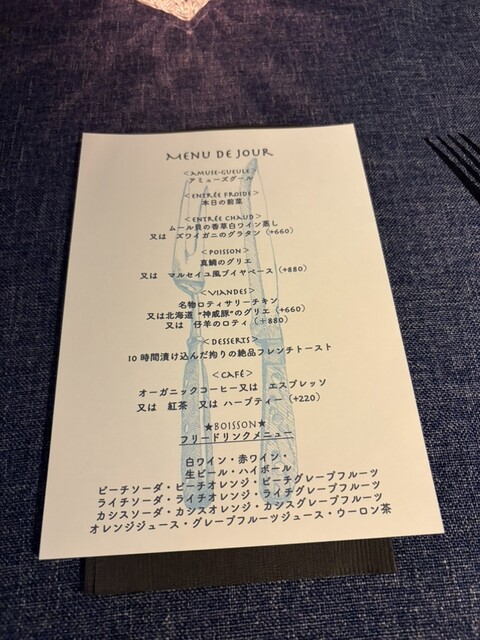 MENU DE JOUR
<AMUSE-GUEULE>
アミューズグール
<ENTRÉE FROIDE>
本日の前菜
<ENTRÉE CHAUD>
ムール貝の香草白ワイン蒸し
又は ズワイガニのグラタン (+660)
<POISSON>
真鯛のグリエ
又は マルセイユ風ブイヤベース (+880)
<VIANDES>
名物ロティサリーチキン
又は北海道 "神威豚"のグリエ (+660)
又は 仔羊のロティ (+880)
<DESSERTS>
10時間漬け込んだ拘りの絶品フレンチトースト
<CAFÉ>
オーガニックコーヒー又は エスプレッソ
又は 紅茶 又は ハーブティー (+220)
★BOISSON★
フリードリンクメニュー
白ワイン・赤ワイン・
生ビール・ハイボール
ピーチソーダ・ピーチオレンジ・ピーチグレープフルーツ
ライチソーダ・ライチオレンジ・ライチグレープフルーツ
カシスソーダ・カシスオレンジ・カシスグレープフルーツ
オレンジジュース・グレープフルーツジュース・ウーロン茶